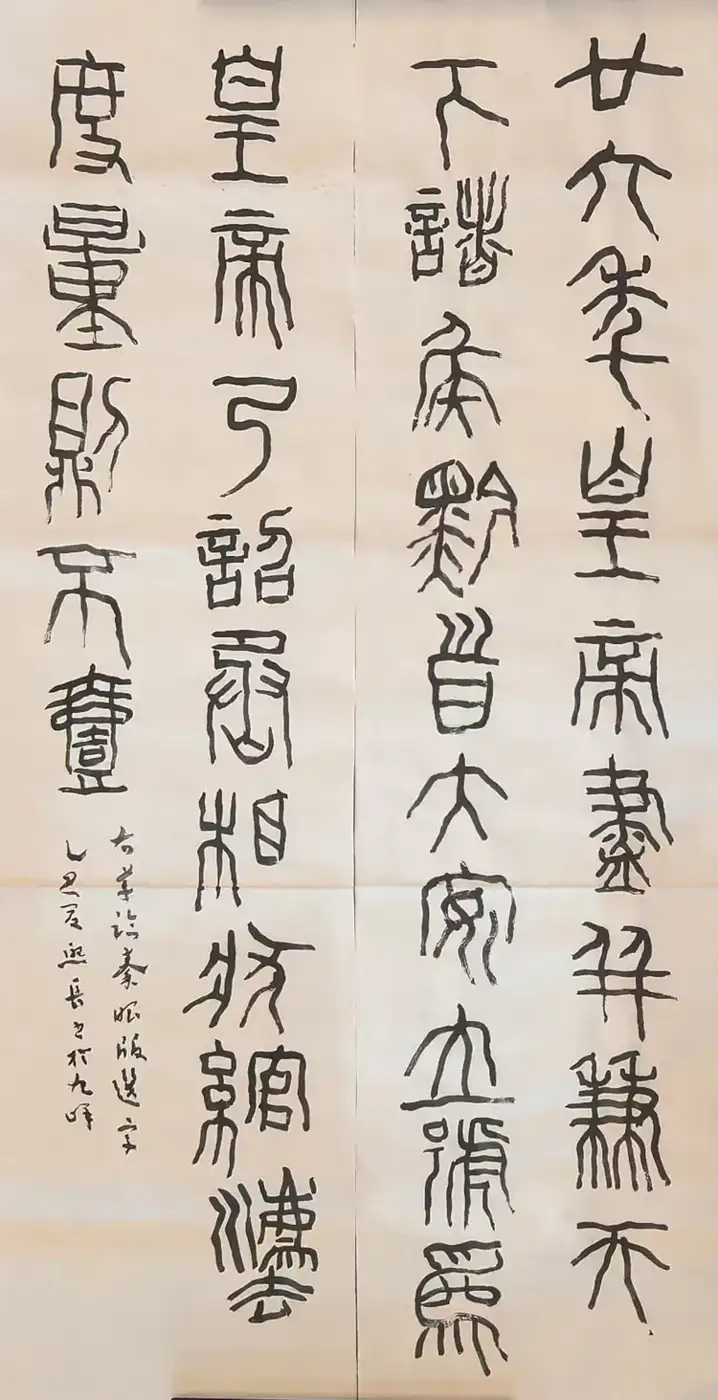 廿六年皇帝盡并兼天
下諸侯黔首大安立號為
皇帝乃詔丞相狀綰灋
度量則不壹
右節臨秦詔版選字
乙巳夏長書於九峰